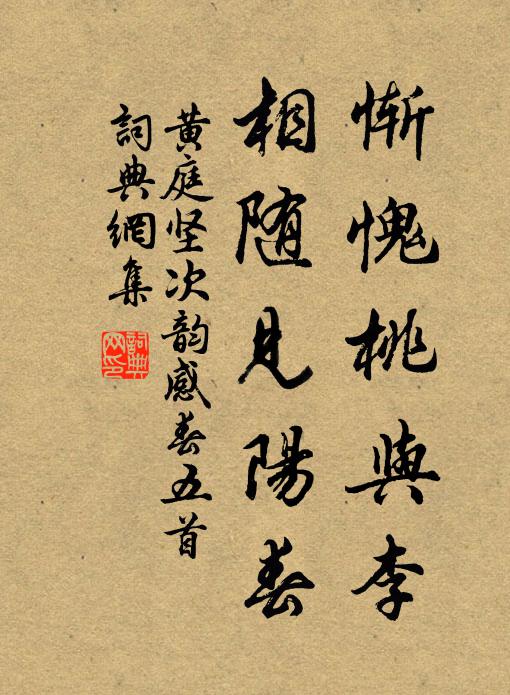 慚愧桃與李
相随見陽春
黄庭坚次韵感春五首
詞典網集
詞典网印